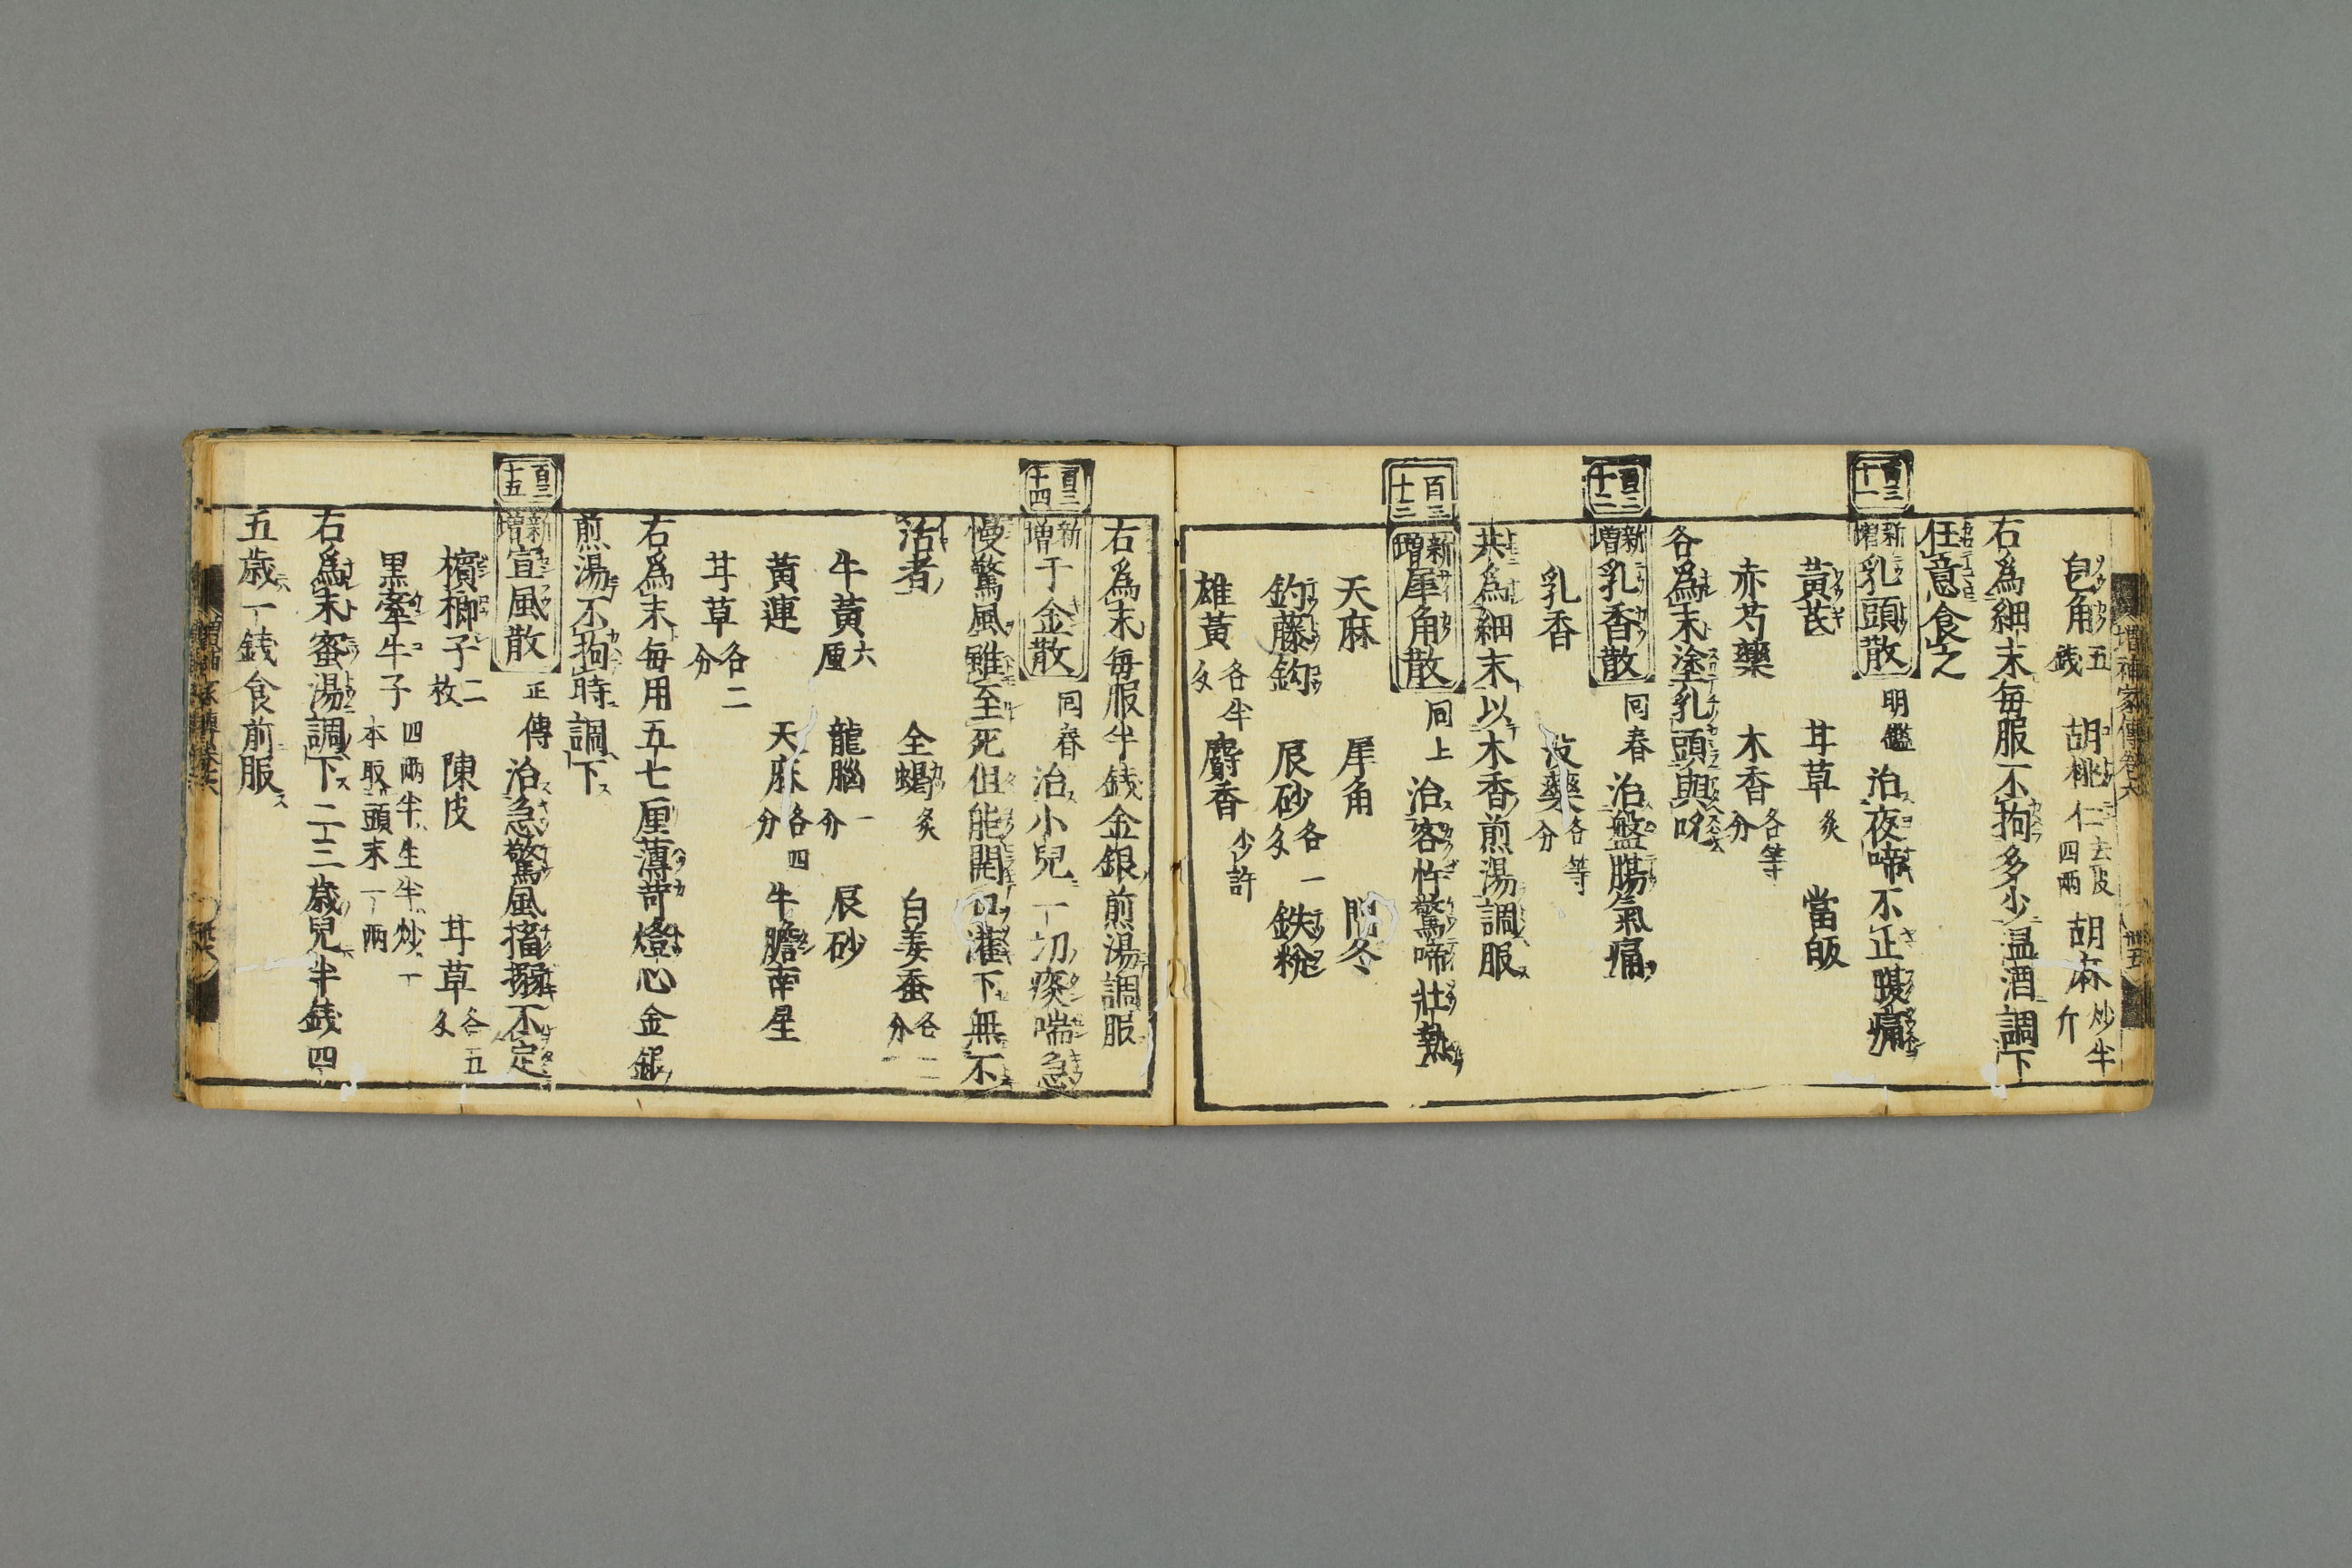 皂角五錢 胡桃仁去皮四兩 胡麻炒半斤
右爲細末毎服不拘多少温酒調下
任意食之
百三十一 新增乳頭散 明鑑 治夜啼不正腹痛
黄芪 耳草炙 當皈
赤芍藥 木香各等分
各爲末塗乳頭與吮
百三十二 新增乳香散 同春 治盤腸氣痛
乳香 没藥各等分
共爲細末以木香煎湯調服
百三十三 新增犀角散 同上 治客忤驚啼壯熱
天麻 犀角 門冬
釣藤鈎 辰砂各一匁 鉄粉
雄黄各半匁 麝香少許
右爲末毎服半錢金銀煎湯調服
百三十四 新增千金散 同春 治小兒一切痰喘急
慢驚風雖至死但能開口灌下無不
活者
全蝎炙 白姜蚕各二分
牛黄六厘 龍腦一分 辰砂
黄連 天麻各四分 牛膽南星
耳草各二分
右爲末毎用五七厘薄苛燈心金銀
煎湯不拘時調下
百三十五 新增宣風散 正傳 治急驚風搐搦不定
檳榔子二枚 陳皮 耳草各五匁
黒牽牛子四兩半生半炒一本取頭末一兩
右爲末蜜湯調下二三歳兒半錢四
五歳一錢食前服